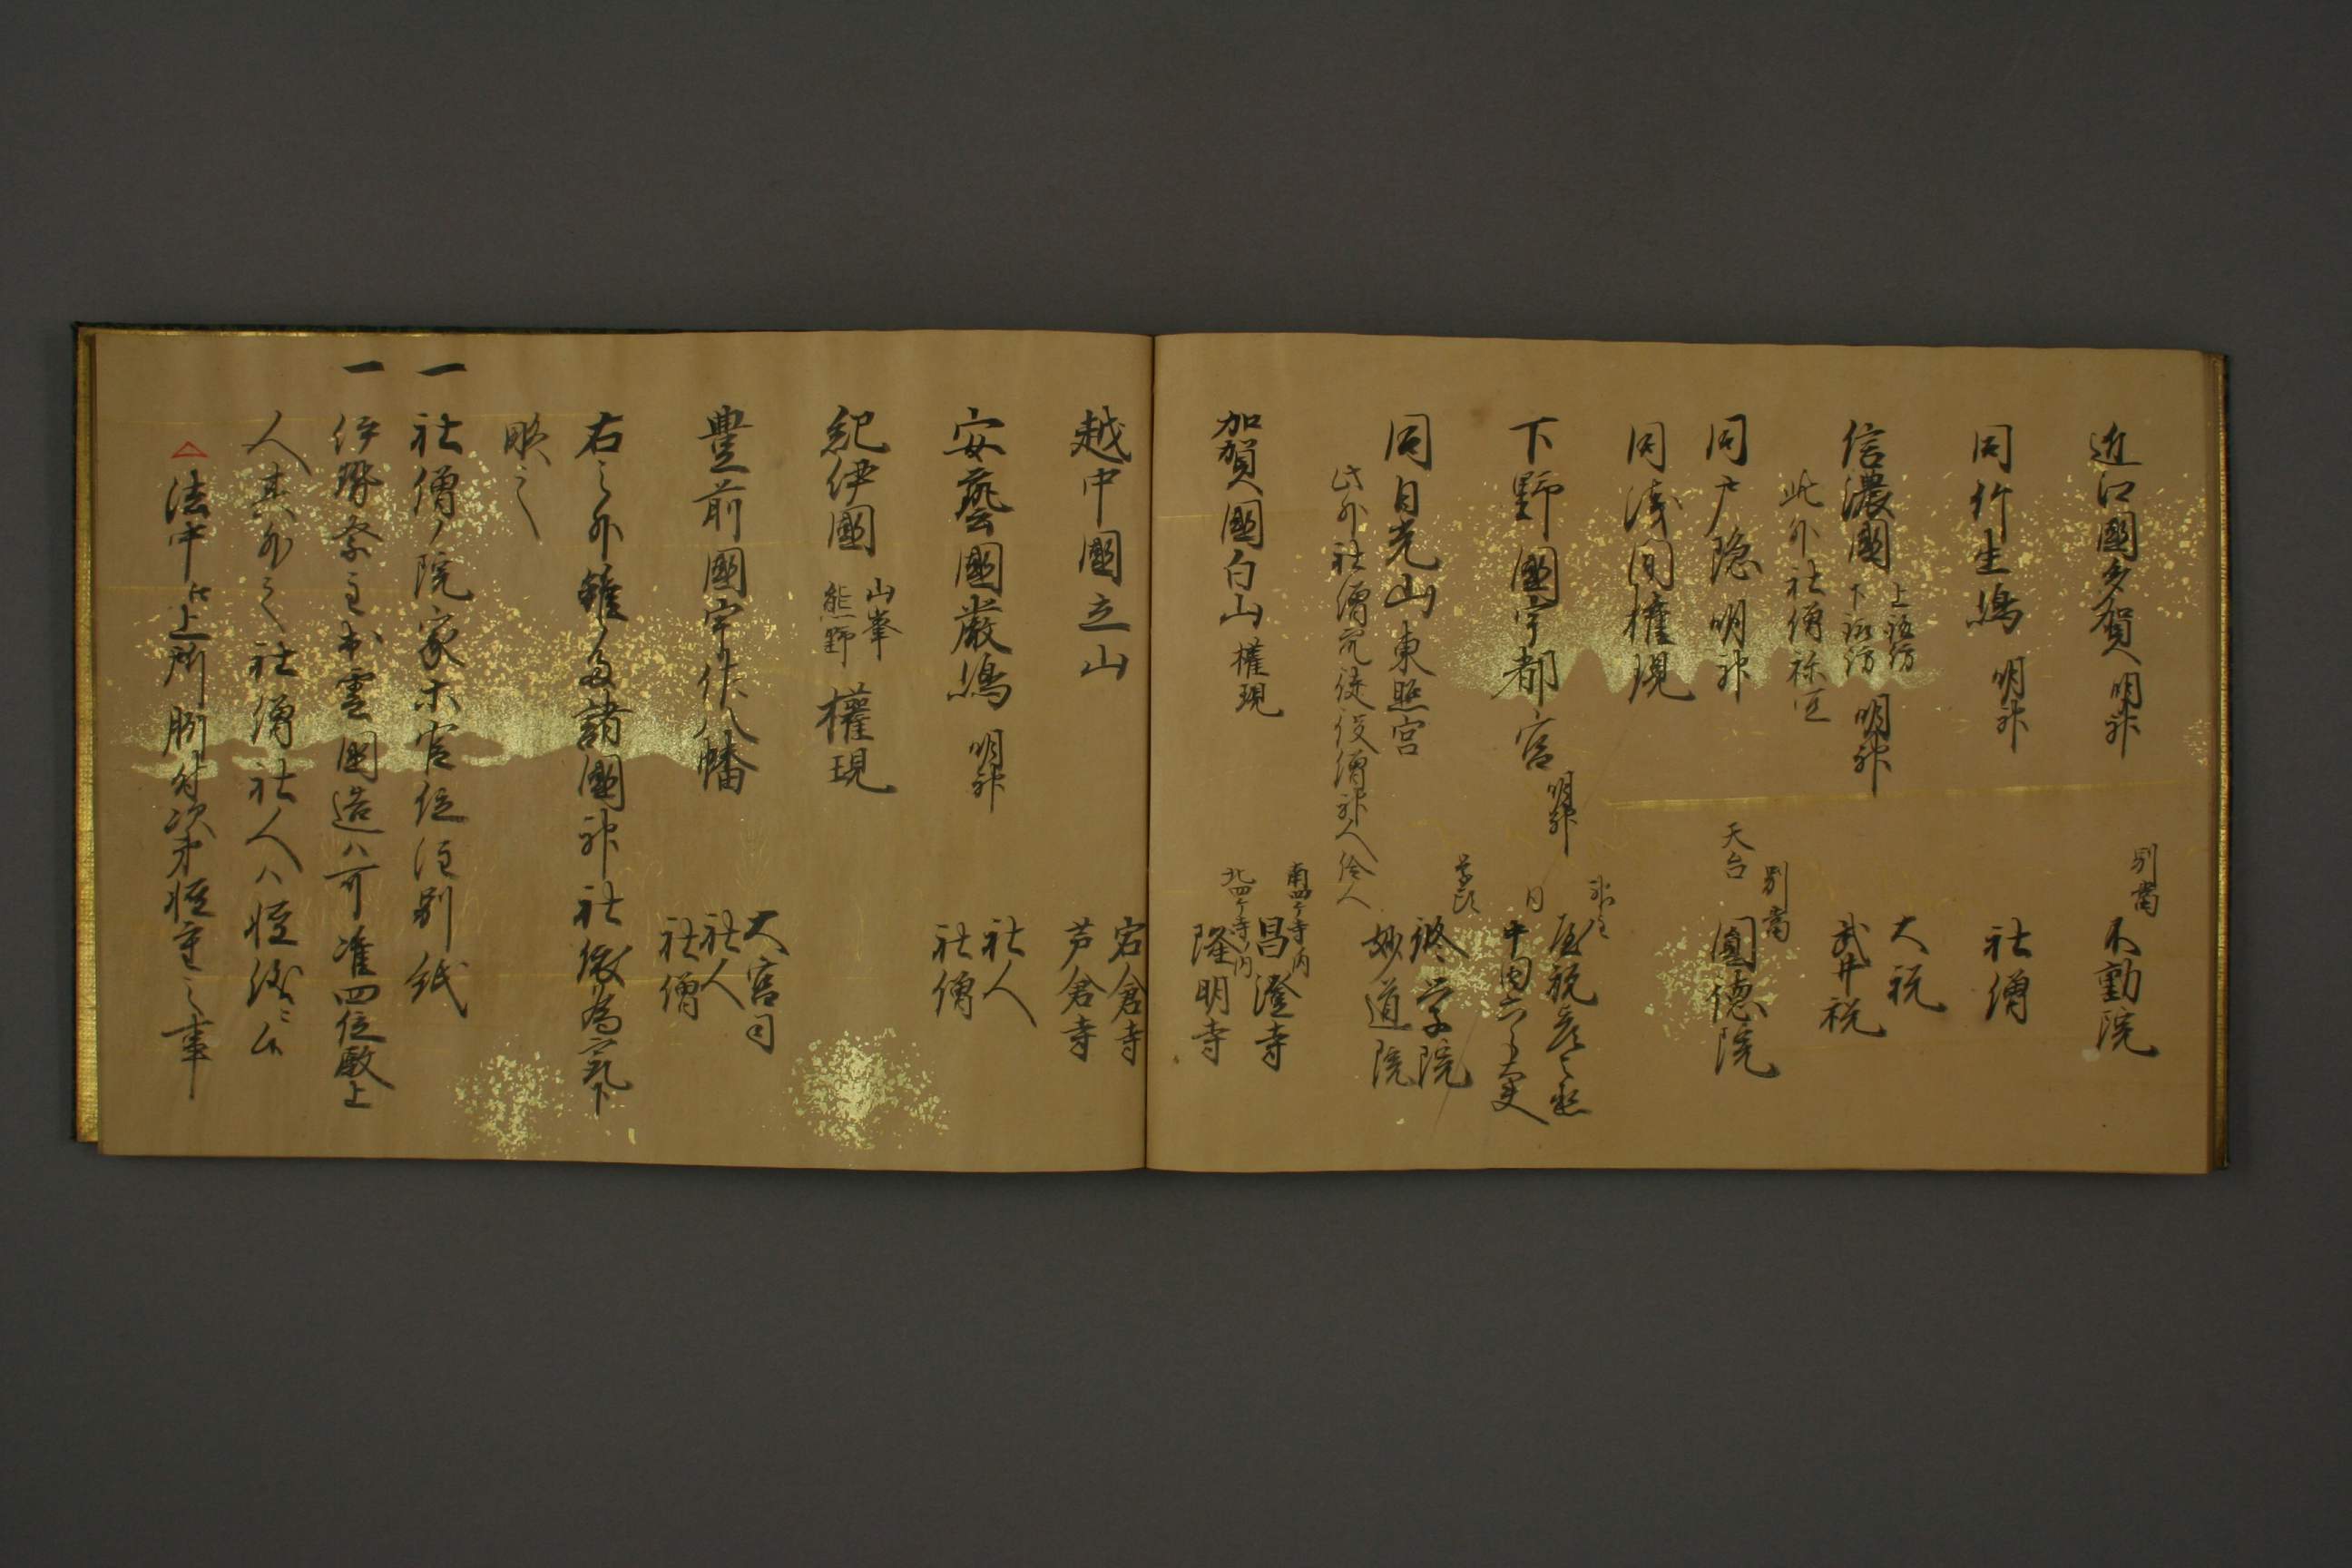 近江國多賀明神 別當 不動院
同竹生嶋明神 社僧
信濃國 上諏訪 下諏訪 明神 大祝 武井祝
此外社僧祢宜
同戸隠明神 別當 天台 圓徳院
同浅間權現
下野國宇都宮明神
同日光山東照宮 修学院 妙道院
此外社僧衆徒役僧神人伶人
加賀國白山權現 南四ケ寺内 昌澄寺 北四ケ寺内 隆明寺
越中國立山 岩倉寺 芦倉寺
安藝國嚴嶋明神 社人 社僧
紀伊國 山峯 熊野 權現
豊前國宇佐八幡 大宮司 社人 社僧
右之外雖多諸國神社繁為家下
略之
一 社僧ノ院家等官位注別紙
一 伊勢祭主出雲國造ハ可准四位殿上
人其外之社僧社人ハ
△法中上所脇付次第軽重之事